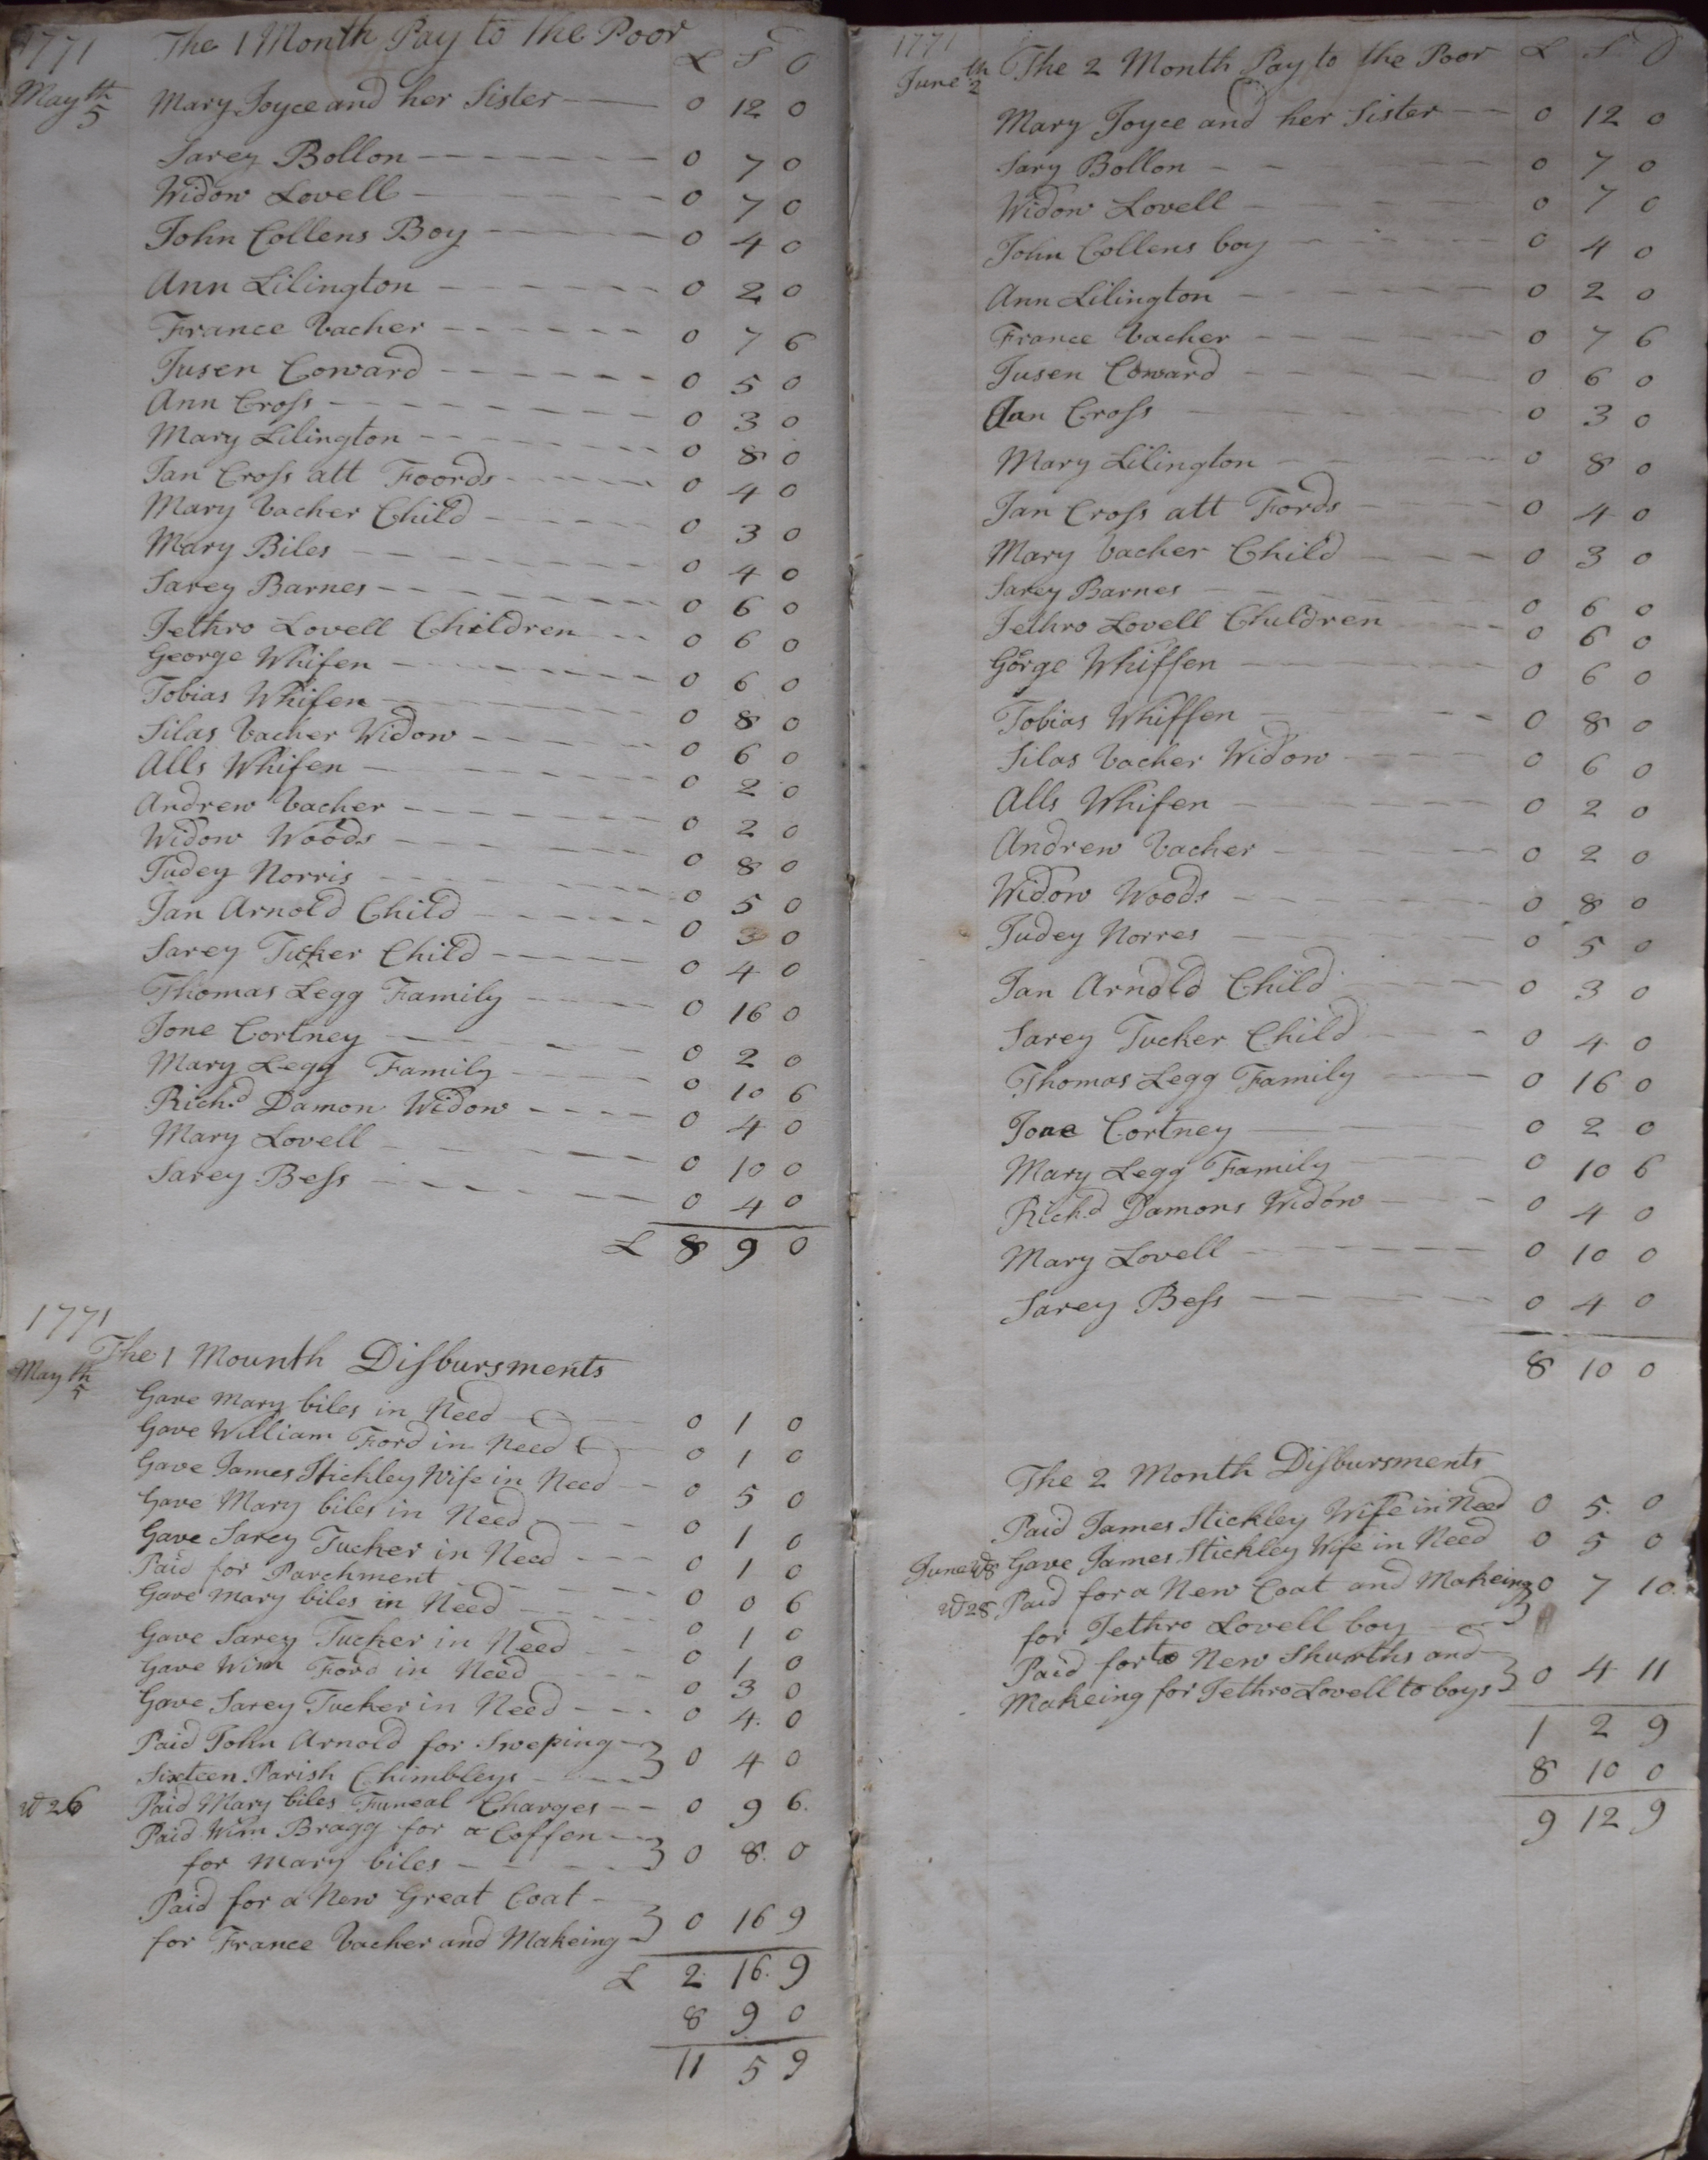 1771 The 1 Month Pay to The Poor £ S D
May th 5 Mary Joyce and her Sister 0 12 0
Sarey Bollon 0 7 0
Widow Lovell 0 7 0
John Collens Boy 0 4 0
Ann Lilington 0 2 0
France Vacher 0 7 6
Susen Coward 0 5 0
Ann Cross 0 3 0
Mary Lilington 0 8 0
Jan Cross att Foords 0 4 0
Mary Vacher Child 0 3 0
Mary Biles 0 4 0
Sarey Barnes 0 6 0
Jethro Lovell Children 0 6 0
George Whifen 0 6 0
Tobias Whifen 0 8 0
Silas Vacher Widow 0 6 0
Alls Whifen 0 2 0
Andrew Vacher 0 2 0
Widow Woods 0 8 0
Judey Norris 0 5 0
Jan Arnold Child 0 3 0
Sarey Tucker Child 0 4 0
Thomas Legg Family 0 16 0
Jone Cortney 0 2 0
Mary Legg Family 0 10 6
Richd Damon Widow 0 4 0
Mary Lovell 0 10 0
Sarey Bess 0 4 0
£ 8 9 0
1771
The 1 Mounth Disbursments
May th 5
Gave Mary biles in Need 0 1 0
Gave William Ford in Need 0 1 0
Gave James Stickley Wife in Need 0 5 0
Gave Mary biles in Need 0 1 0
Gave Sarey Tucker in Need 0 1 0
Paid for Parchment 0 0 6
Gave Mary biles in Need 0 1 0
Gave Sarey Tucker in Need 0 1 0
Gave Wim Ford in Need 0 3 0
Gave Sarey Tucker in Need 0 4 0
Paid John Arnold for Sweping
Sixteen Parish Chimbleys 0 4 0
26 Paid Mary biles Funeal Charges 0 9 6
Paid Wim Bragg for a Coffen
for Mary biles 0 8 0
Paid for a New Great Coat
for France Vacher and Makeing 0 16 9
£ 2 16 9
8 9 0
11 5 9
1771
June th 2 The 2 Month Pay to the Poor £ S D
Mary Joyce and her Sister 0 12 0
Sary Bollon 0 7 0
Widow Lovell 0 7 0
John Collens boy 0 4 0
Ann Lilington 0 2 0
France Vacher 0 7 6
Susen Coward 0 6 0
Jan Cross 0 3 0
Mary Lilington 0 8 0
Jan Cross att Fords 0 4 0
Mary Vacher Child 0 3 0
Sarey Barnes 0 6 0
Jethro Lovell Children 0 6 0
Gorge Whiffen 0 6 0
Tobias Whiffen 0 8 0
Silas Vacher Widow 0 6 0
Alls Whifen 0 2 0
Andrew Vacher 0 2 0
Widow Woods 0 8 0
Judey Norres 0 5 0
Jan Arnold Child 0 3 0
Sarey Tucker Child 0 4 0
Thomas Legg Family 0 16 0
Jone Cortney 0 2 0
Mary Legg Family 0 10 6
Richd Damons Widow 0 4 0
Mary Lovell 0 10 0
Sarey Bess 0 4 0
8 10 0
The 2 Month Disbursments
Paid James Stickley Wife in Need 0 5 0
June Gave James Stickley Wife in Need 0 5 0
28 Paid for a New Coat and Makeing 0 7 10
for Jethro Lovell boy
Paid for to New Shurths and
Makeing for Jethro Lovell to boys 0 4 11
1 2 9
8 10 0
9 12 9